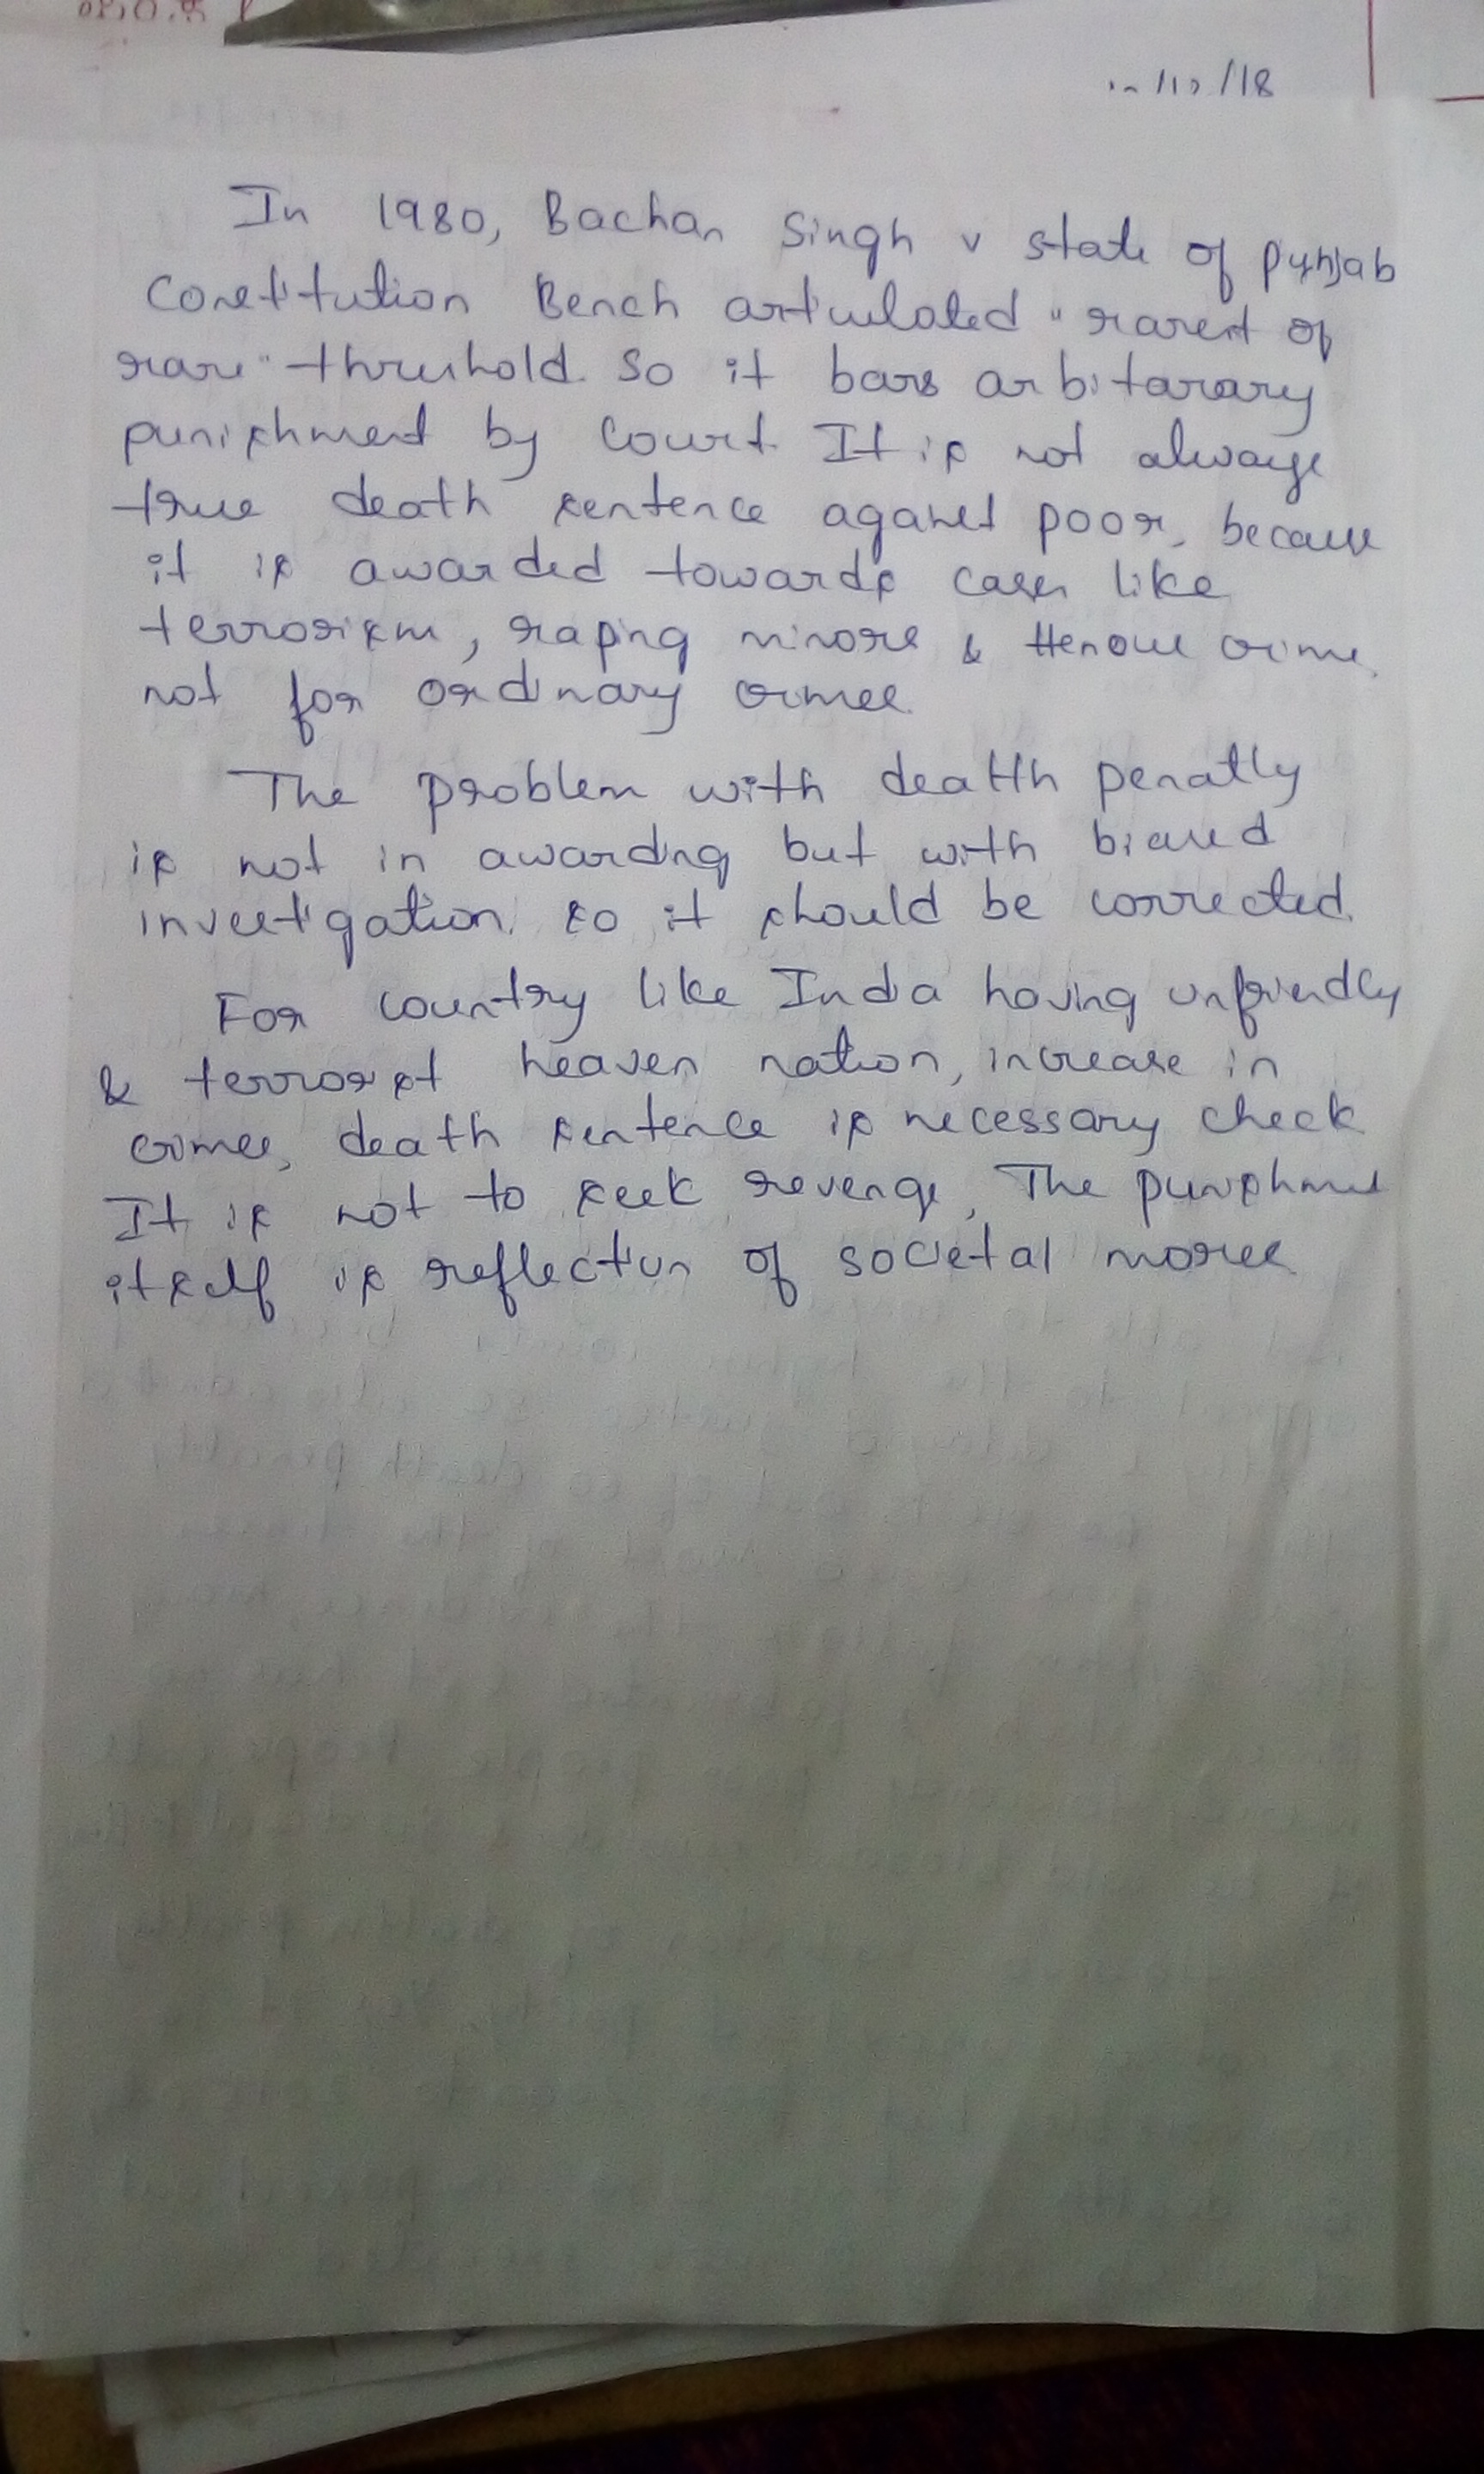 /18
In 1980, Bachan Singh v state of Punjab
Constitution Bench articulated "rarest of
rare" threshold. So it bars arbitarary
punishment by Court. It is not always
true death sentence against poor, because
it is awarded towards cases like
terrorism, raping minors & Henous crime,
not for ordinary crimes.
The problem with deatth penatly
is not in awarding but with biased
investigation. so it should be corrected.
For country like India having unfriendly
& terrorist heaven nation, increase in
crimes, death sentence is necessary check
It is not to seek revenge, The punishment
itself is reflection of societal mores